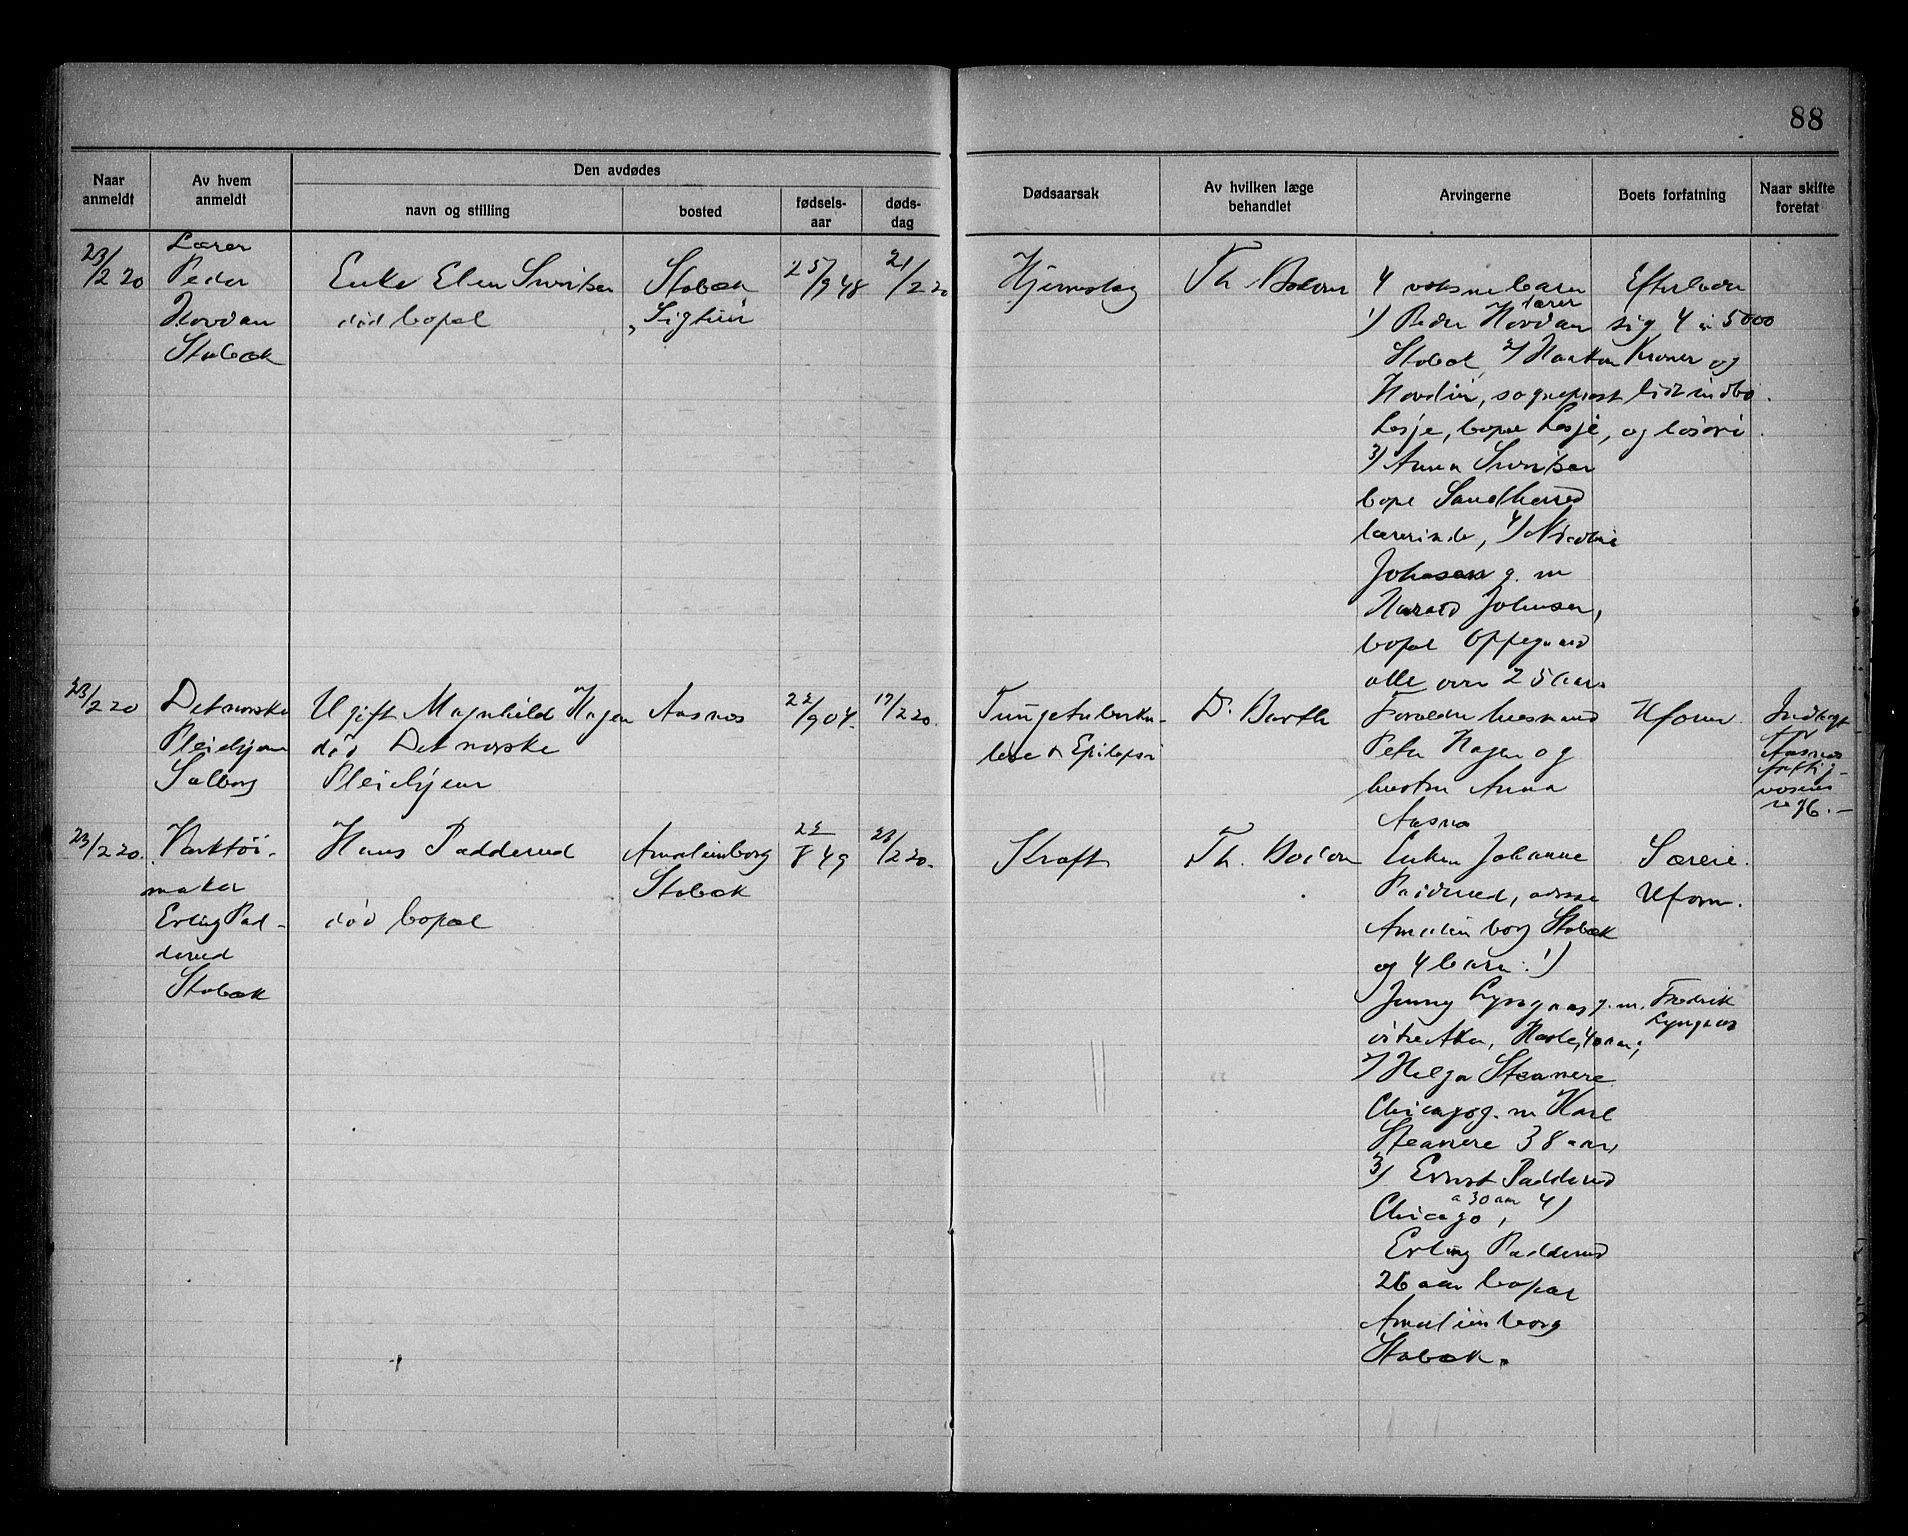 88
Naar anmeldt
Av hvem anmeldt
Den avdødes
navn og stilling
bosted
fødsels-aar
døds-dag
Dødsaarsak
Av hvilken læge behandlet
Arvingerne
Boets forfatning
Naar skifte foretat
23/2 20
Lærer
Peder
Hovdan
Stabæk
Enke Elen Sivertsen
død bopæl
Stabæk
"Sigtun"
25/9 48
21/2 20
Hjerneslag
Th.
4 voksne barn
1) Peder Hovdan lærer
Stabæk, 2) Haakon
Hovdan, sogneprest
Lesje, bopæl Lesje,
3) Anna Sivertsen
bopæl Sandherred
lærerinde, 4)
Johnsen g. m
Harald Johnsen,
bopæl Oppegaard
alle over 25 aar.
Efterlader
sig 4 a 5000
Kroner og
lidt indbo
og løsøre.
23/2 20
Det norske
Pleiehjem
Solberg
Ugift Magnhild Hagen
død Det norske
Pleiehjem
Aasnes
22/9 04.
17/2 20.
Tungetuberku-
lose & Epilepsi
Dr. Barth
Forældre husmand
Peter Hagen og
hustru Anna
Aasnes
Uform.
Indbragt
Aasnes
23/2 20.
Verktøi-
maker
Erling Pad-
derud
Stabæk
Hans Padderud
død bopæl
Amalienborg
Stabæk
22/8 49
23/2 20.
Kræft
Th.
Enken Johanne
Padderud, adresse
Amalienborg Stabæk
og 4 barn: 1)
Jenny Lyngaas g. m. Fredrik Lyngaas
østre Aker, Hasle, 40 aar;
2) Helga Steanere
Chicago g. m Karl
Steanere 38 aar,
3) Ernst Padderud
Chicago, a 30 aar 4)
Erling Padderud
26 aar bopæl
Amalienborg
Stabæk.
Særeie.
Uform.